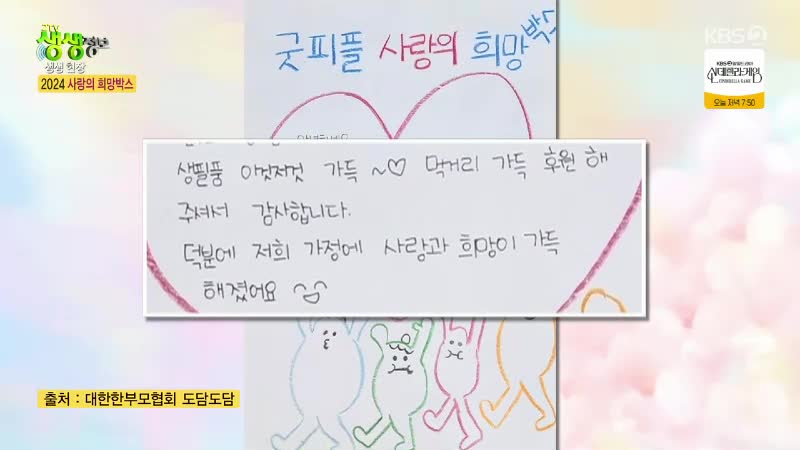 2TV
생생정보
생생 현장
2024 사랑의 희망박스
굿피플 사랑의 희망박스
KBS2
KBS2 일일드라마
신데렐라 게임
CINDERELLA GAME
오늘 저녁 7:50
생필품 이것저것 가득 ~♡ 먹거리 가득 후원 해
주셔서 감사합니다.
덕분에 저희 가정에 사랑과 희망이 가득
해졌어요 ^^
출처 : 대한한부모협회 도담도담